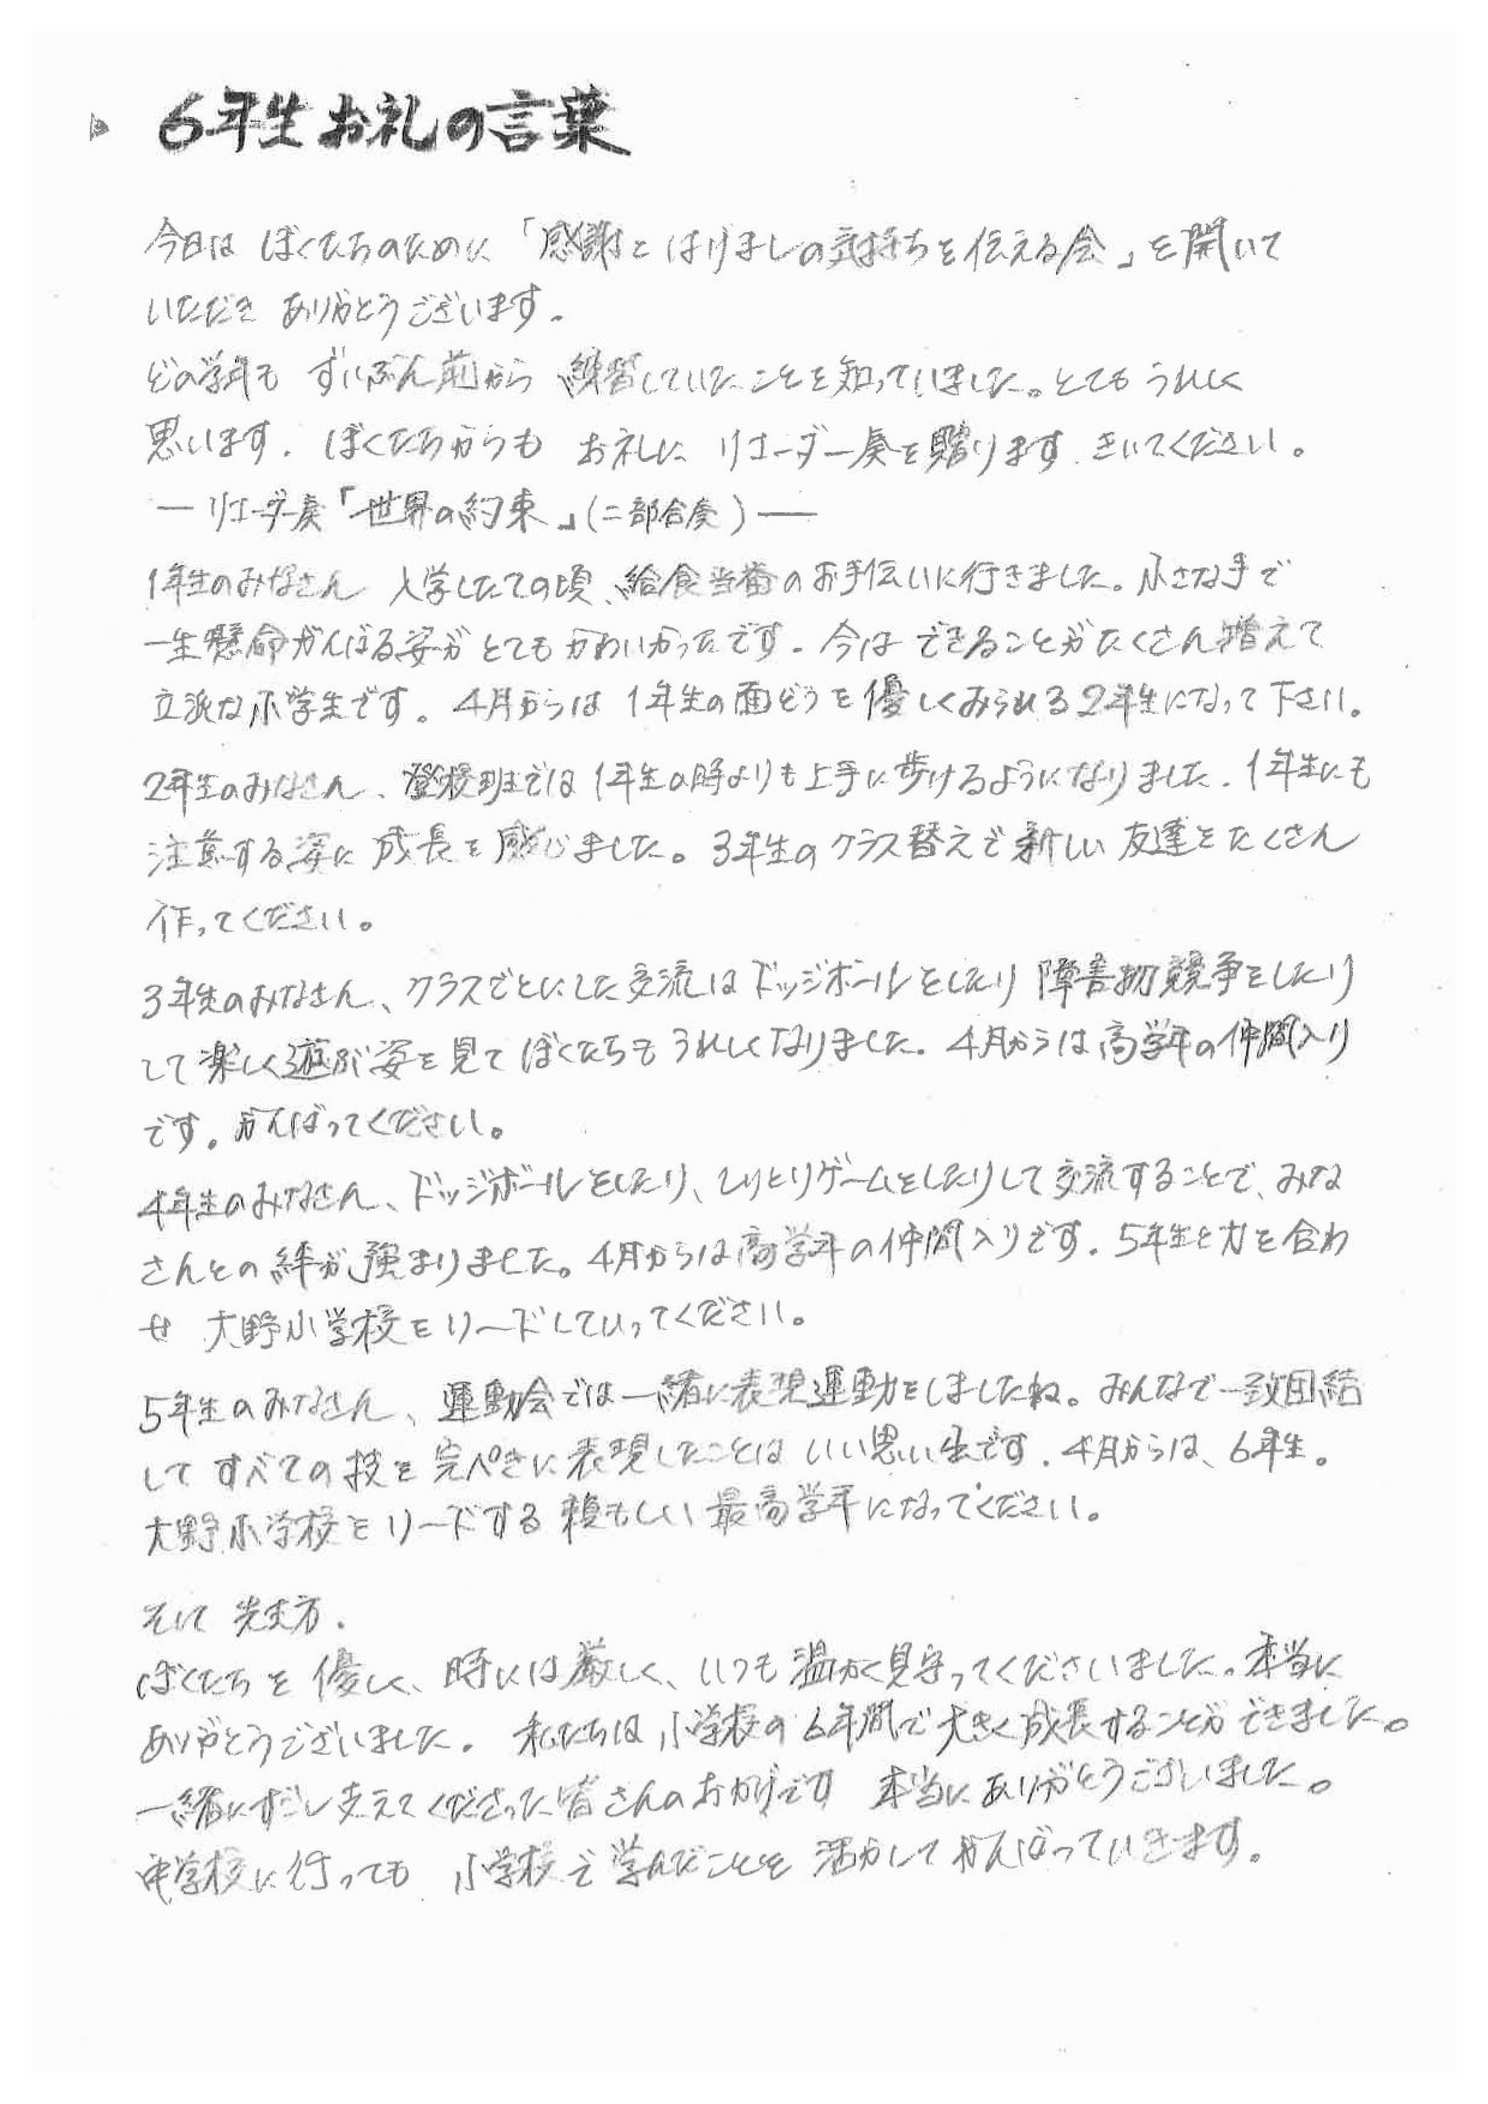 6年生お礼の言葉
今日は ぼくたちのために「感謝とはげましの気持ちを伝える会」を開いて
いただき ありがとうございます。
どの学年も ずいぶん前から 練習していたことを知っていました。とても うれしく
思います。ぼくたちからも お礼に リコーダー奏を贈ります。きいてください。
ーリコーダー奏「世界の約束」(二部合奏)ー
1年生のみなさん 入学したての頃、給食当番のお手伝いに行きました。小さな手で
一生懸命がんばる姿が とてもかわいかったです。今は できることがたくさん増えて
立派な小学生です。4月からは 1年生の面どうを優しくみられる2年生になって下さい。
2年生のみなさん、登校班では 1年生の時よりも上手に歩けるようになりました。1年生にも
注意する姿に 成長を感じました。3年生のクラス替えで新しい 友達をたくさん
作ってください。
3年生のみなさん、クラスごとにした交流はドッジボールをしたり 障害物競争をしたり
して楽しく遊ぶ姿を見て ぼくたちも うれしくなりました。4月からは高学年の仲間入り
です。がんばってください。
4年生のみなさん、ドッジボールをしたり、しりとりゲームをしたりして交流することで、みな
さんとの絆が強まりました。4月からは高学年の仲間入りです。5年生と力を合わ
せ 大野小学校をリードしていってください。
5年生のみなさん、運動会では一緒に表現運動をしましたね。みんなで一致団結
して すべての技を完ぺきに表現したことは いい思い出です。4月からは、6年生。
大野小学校をリードする 頼もしい最高学年になってください。
そして 先生方。
ぼくたちを優しく、時には厳しく、いつも温かく見守ってくださいました。本当に
ありがとうございました。私たちは小学校の6年間で大きく成長することができました。
一緒にすごし支えてくださった皆さんのおかげです 本当にありがとうございました。
中学校に行っても 小学校で学んだことを 活かしてがんばっていきます。